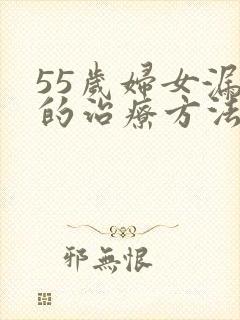 55歲婦女漏
的治療方法
邪無恨